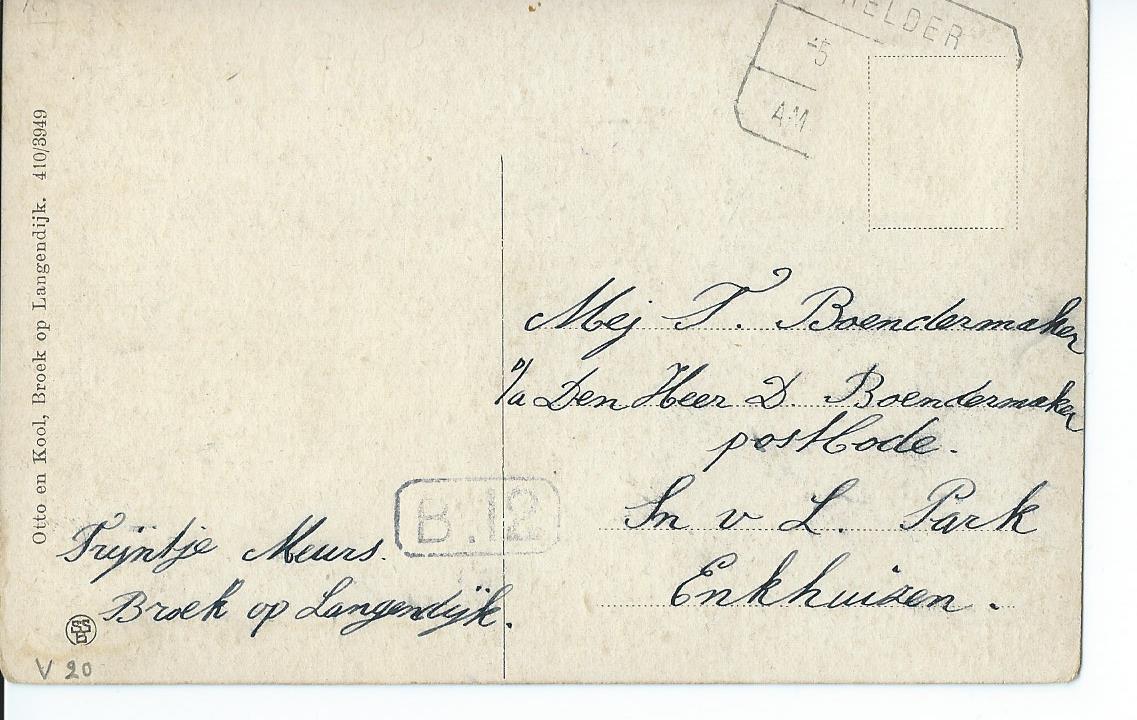 HELDER
-5
AM
Otto en Kool, Broek op Langendijk. 410/3949
Mej T. Boendermaker
p/a Den Heer D. Boendermaker
postbode.
Sn v L. Park
Enkhuizen.
B.12
Trijntje Meurs.
Broek op Langendijk.
V 20